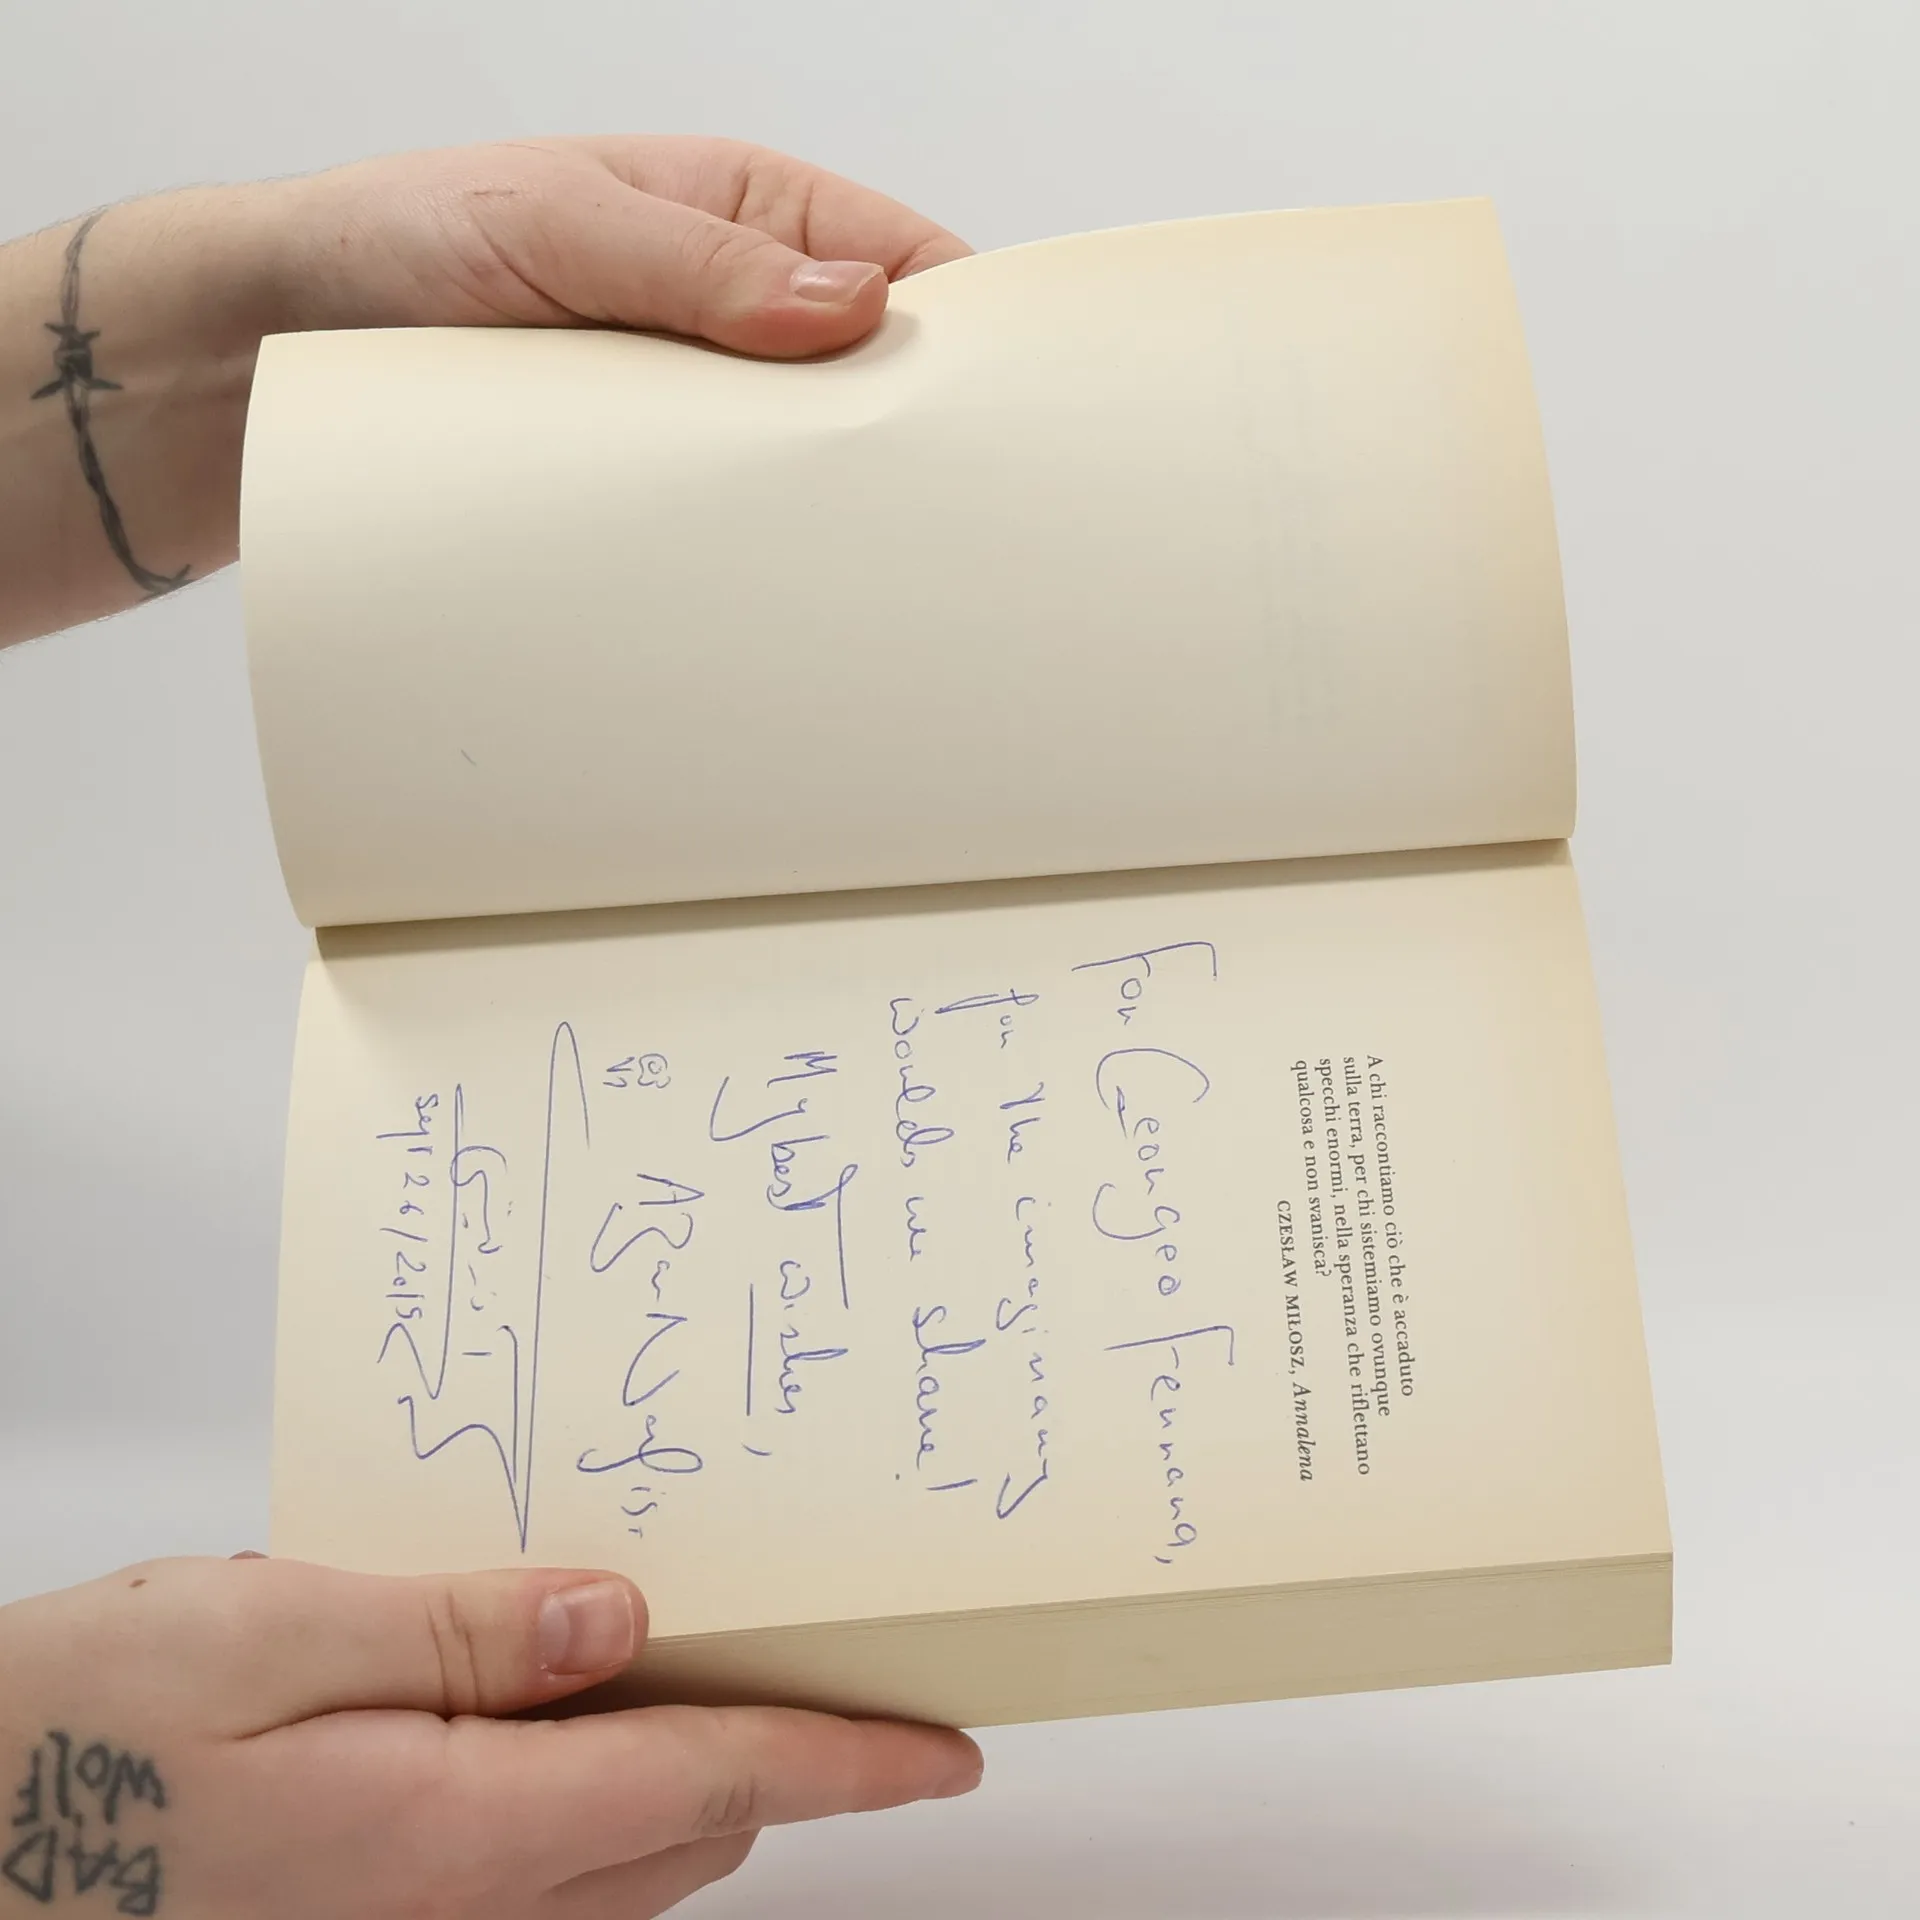 A chi raccontiamo ciò che è accaduto
sulla terra, per chi sistemiamo ovunque
specchi enormi, nella speranza che riflettano
qualcosa e non svanisca?
CZESŁAW MIŁOSZ, Annalena
For
for the imaginary
worlds we share!
My best wishes,
Azar Nafisi
Sept 26/2019
BAD
WOLF